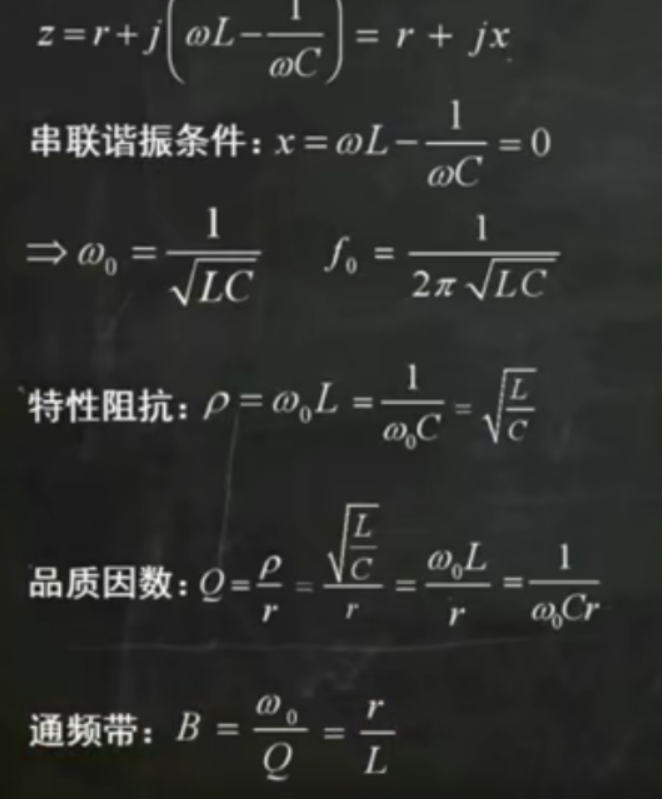 z = r + j(ωL − 1/ωC) = r + jx
串联谐振条件: x = ωL − 1/ωC = 0
⇒ ω₀ = 1/√LC    f₀ = 1/2π√LC
特性阻抗: ρ = ω₀L = 1/ω₀C = √L/C
品质因数: Q = ρ/r = √L/C/r = ω₀L/r = 1/ω₀Cr
通频带: B = ω₀/Q = r/L